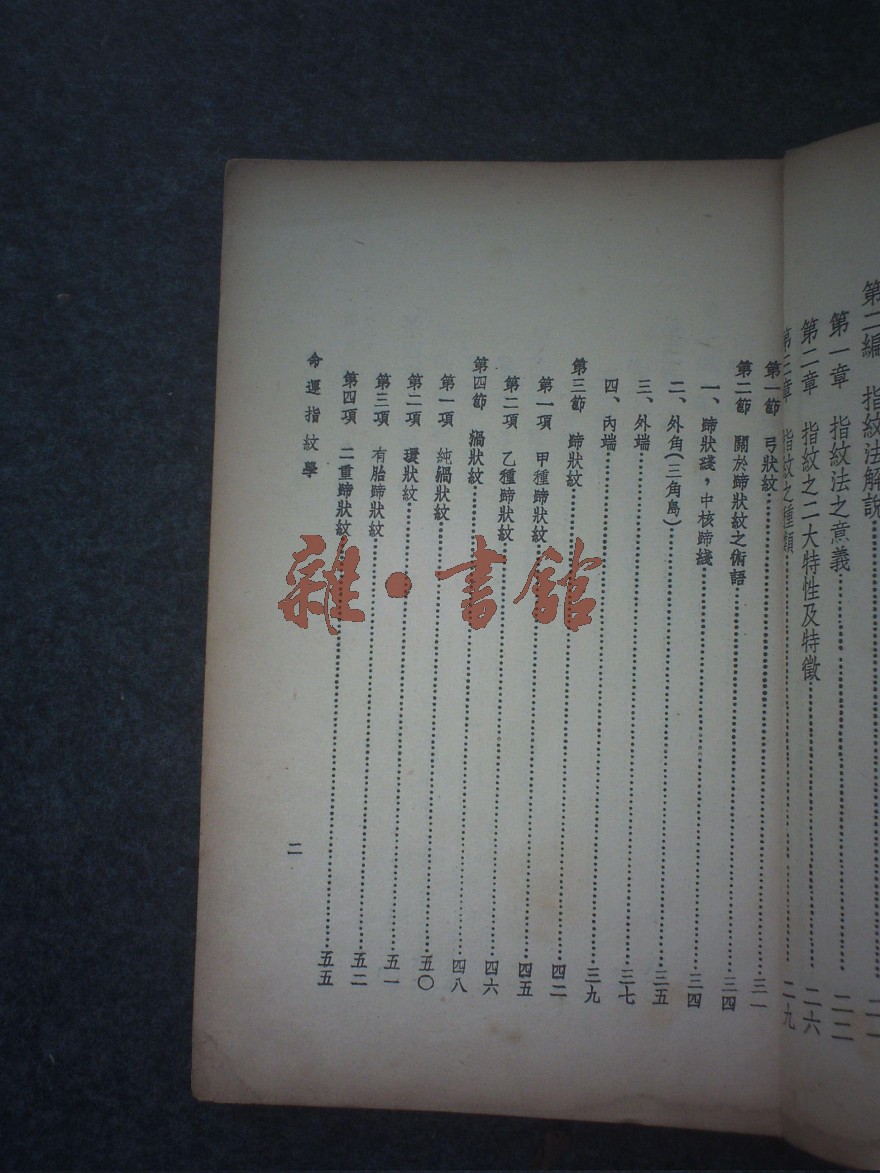 第二編 指紋法解說…………二一
第一章 指紋法之意義…………二二
第二章 指紋之二大特性及特徵…………二六
第三章 指紋之種類…………二九
第一節 弓狀紋…………三一
第二節 關於蹄狀紋之術語…………三四
一、蹄狀綫，中核蹄綫…………三四
二、外角(三角島)…………三五
三、外端…………三七
四、內端…………三九
第三節 蹄狀紋…………四二
第一項 甲種蹄狀紋…………四五
第二項 乙種蹄狀紋…………四六
第四節 渦狀紋…………四八
第一項 純渦狀紋…………五〇
第二項 環狀紋…………五一
第三項 有胎蹄狀紋…………五二
第四項 二重蹄狀紋…………五五
命運指紋學
二
雜·書館